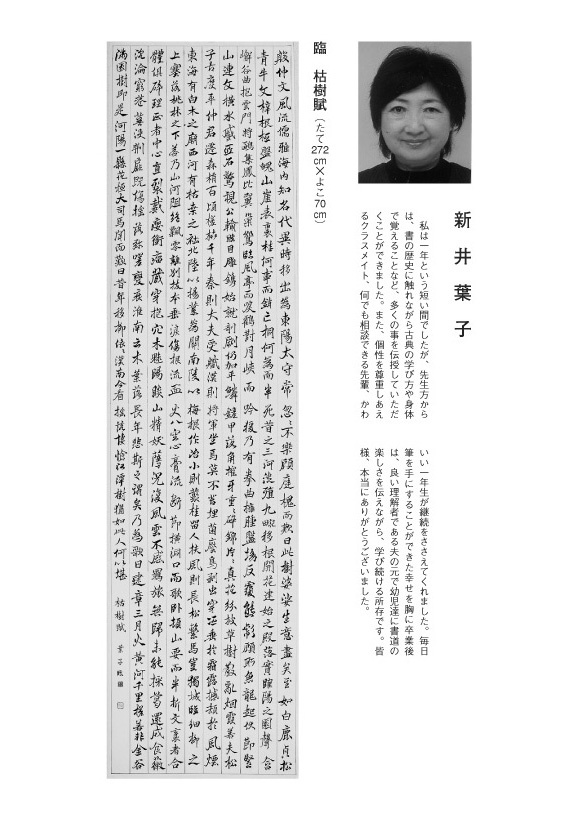 新井葉子
　私は一年という短い間でしたが、先生方から
は、書の歴史に触れながら古典の学び方や身体
で覚えることなど、多くの事を伝授していただ
くことができました。また、個性を尊重しあえ
るクラスメイト、何でも相談できる先輩、かわ
いい一年生が継続をささえてくれました。毎日
筆を手にすることができた幸せを胸に卒業後
は、良い理解者である夫の元で幼児達に書道の
楽しさを伝えながら、学び続ける所存です。皆
様、本当にありがとうございました。
臨　枯樹賦（たて272cm×よこ70cm）
殷仲文風流儒雅海内知名代異時移出為東陽太守常忽〻不樂顧庭槐而歎曰此樹婆娑生意盡矣至如白鹿貞松
青牛文梓根柢盤魄山崖表裏桂何事而銷亡桐何為而半死昔之三河徙殖九畹移根開花建始之殿落實睢陽之園聲含
嶰谷曲抱雲門將雛集鳳比翼巢鴛臨風亭而唳鶴對月峽而吟猨乃有拳曲擁腫盤坳反覆熊彪顧盼魚龍起伏節竪
山連文横水蹙匠石驚視公輸眩目雕鐫始就剞劂仍加平鱗鏟甲落角摧牙重〻碎錦片〻真花紛披草樹散亂煙霞若夫松
子古度平仲君遷森梢百頃槎枿千年秦則大夫受職漢則將軍坐焉莫不苔埋菌壓鳥剥虫穿垂於霜露撼頓於風煙
東海有白木之廟西河有枯桑之社北陸以楊葉為關南陵以梅根作冶小則叢桂留人扶風則長松繫馬豈獨城臨細柳之
上塞落桃林之下若乃山河阻絶飄零離別拔本垂淚傷根流血火入空心膏流斷節横洞口而敧卧頓山要而半折文衺者合
體俱碎理正者中心直裂戴癭銜瘤藏穿抱穴木魅睒睗山精妖孽况復風雲不感羇旅無歸未能採葛還成食薇
沉淪窮巷蕪没荆扉既傷搖落弥嗟變衰淮南云木葉落長年悲斯之謂矣乃為歌曰建章三月火黄河千里槎若非金谷
滿園樹即是河陽一縣花桓大司馬聞而歎曰昔年移柳依〻漢南今看搖落悽愴江潭樹猶如此人何以堪　枯樹賦　葉子臨